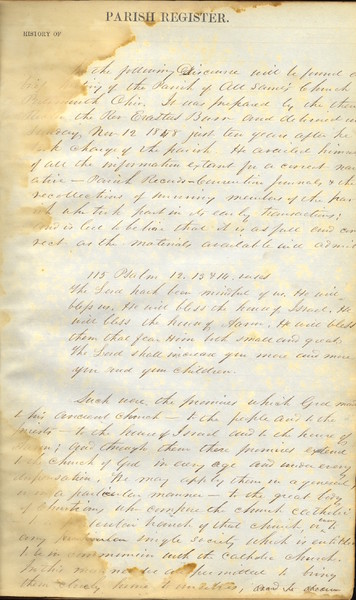 PARISH REGISTER.
HISTORY OF
the following Discourse will be found a
of the Parish of All Saints Church
Portsmouth Ohio. It was prepared by the then
the Rev Erastus Burr and delivered on
Sunday, Nov 12 1848 just ten years after he
took charge of the parish. He availed himself
of all the information extant for a correct narr
ative — Parish Records Convention Journals, & the
recollections of surviving members of the par
ish who took part in its early transactions;
and is believed that it is as full and cor
rect as the materials available will admit
115 Psalm 12. 13 & 14. verses
The Lord hath been mindful of us, He will
bless us, He will bless the house of Israel, He
will bless the house of Aaron. He will bless
them that fear Him both small and great;
The Lord shall increase you more and more
you and your children.
Such were the promises which God made
to his ancient church — to the people and to the
priests — to the house of Israel and to the house of
Aaron; and through them these promises extend
to the church of God in every age and under every
dispensation. We may apply them in a general
in a particular manner — to the great body
of Christians who compose the church catholic
branch of that church, in
any particular single society which is entitled
in communion with the Catholic church.
In this may not we be permitted to bring
them closely home to ourselves, and to